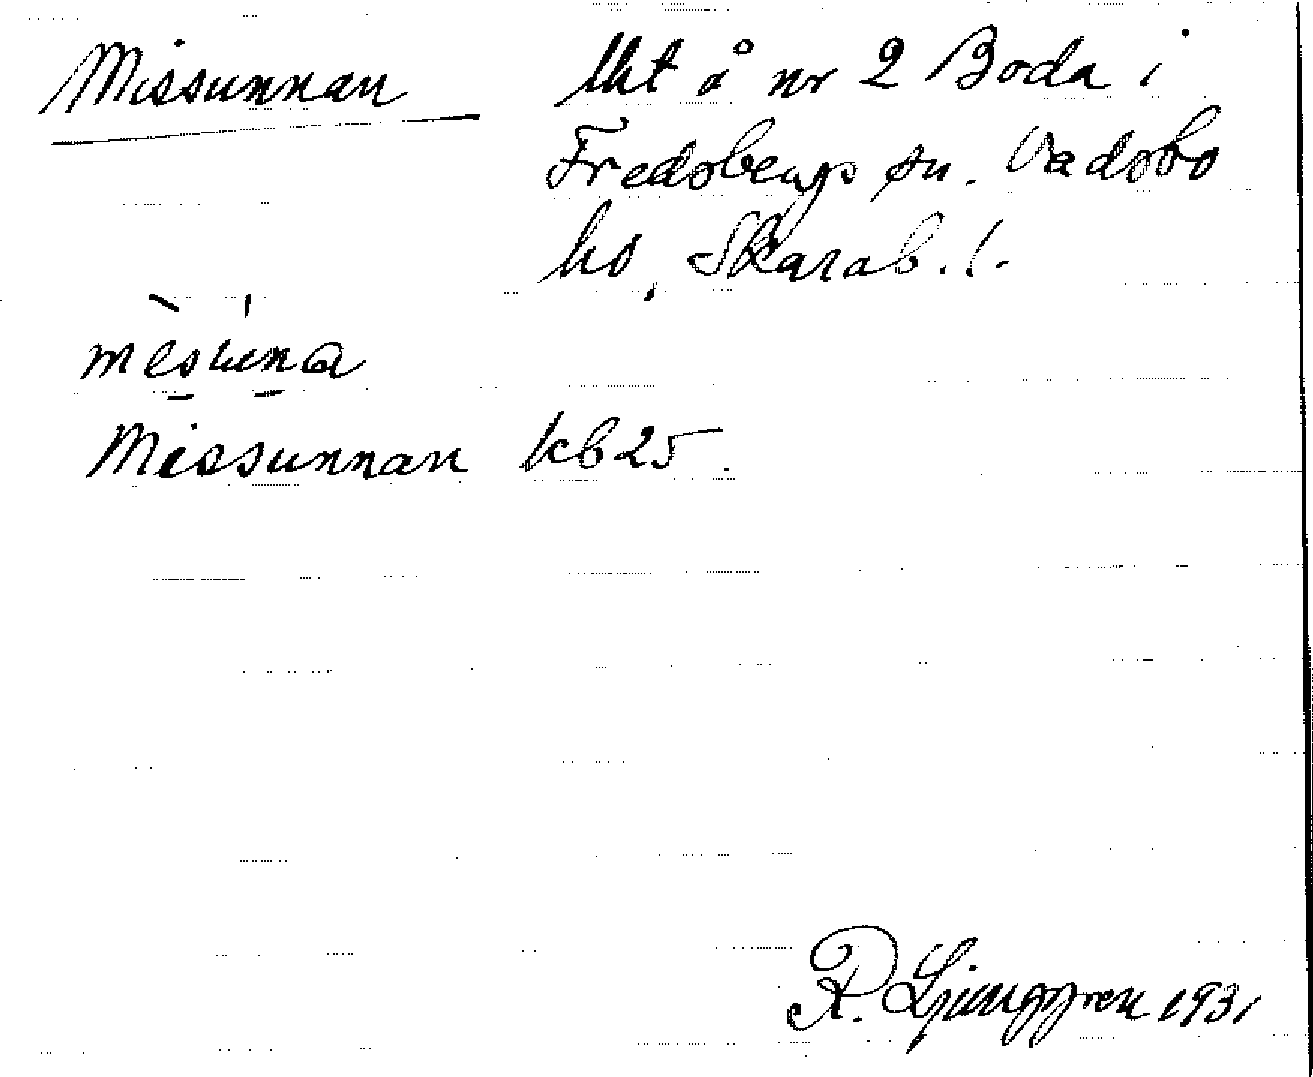 Missunnan
lht å nr 2 Boda i
Fredsbergs sn. Vadsbo
hd, Skarab. l.
mesuna
Missunnan kb 25.
R. Ljunggren 1931